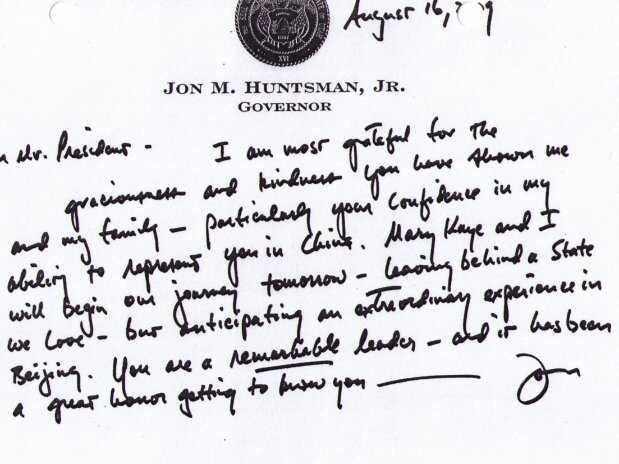 August 16,
JON M. HUNTSMAN, JR.
GOVERNOR
Mr. President - I am most grateful for the
graciousness and kindness you have shown me
and my family - particularly your confidence in my
ability to represent you in China. Mary Kaye and I
will begin our journey tomorrow - leaving behind a State
we love - but anticipating an extraordinary experience in
Beijing. You are a remarkable leader - and it has been
a great honor getting to know you — Jon